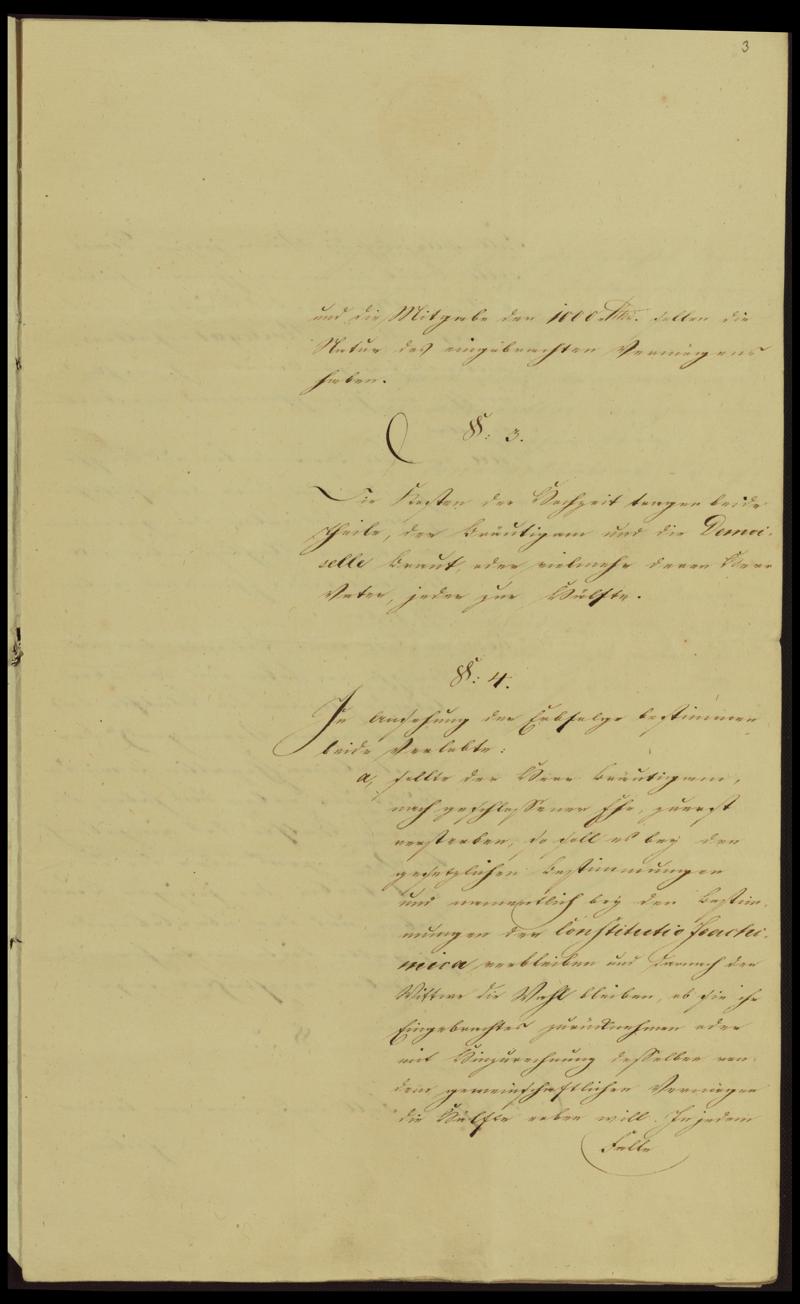 3
und die Mitgabe der 1000 Thlr. sollen die
Natur des eingebrachten Vermögens
haben.
§: 3.
Die Kosten der Hochzeit tragen beide
Theile, der Bräutigam und die Demoi-
selle Braut, oder vielmehr deren Herr
Vater, jeder zur Hälfte.
§: 4.
In Ansehung der Erbfolge bestimmen
beide Verlobte:
a, sollte der Herr Bräutigam,
nach geschlossener Ehe, zuerst
versterben, so soll es bey den
gesetzlichen Bestimmungen
und namentlich bey den Bestim-
mungen der Constitutio Joachi-
mica verbleiben und darnach der
Wittwe die Wahl bleiben, ob sie ihr
Eingebrachtes zurücknehmen oder
mit Hinzurechnung desselben von
dem gemeinschaftlichen Vermögen
die Hälfte erben will. In jedem
Falle